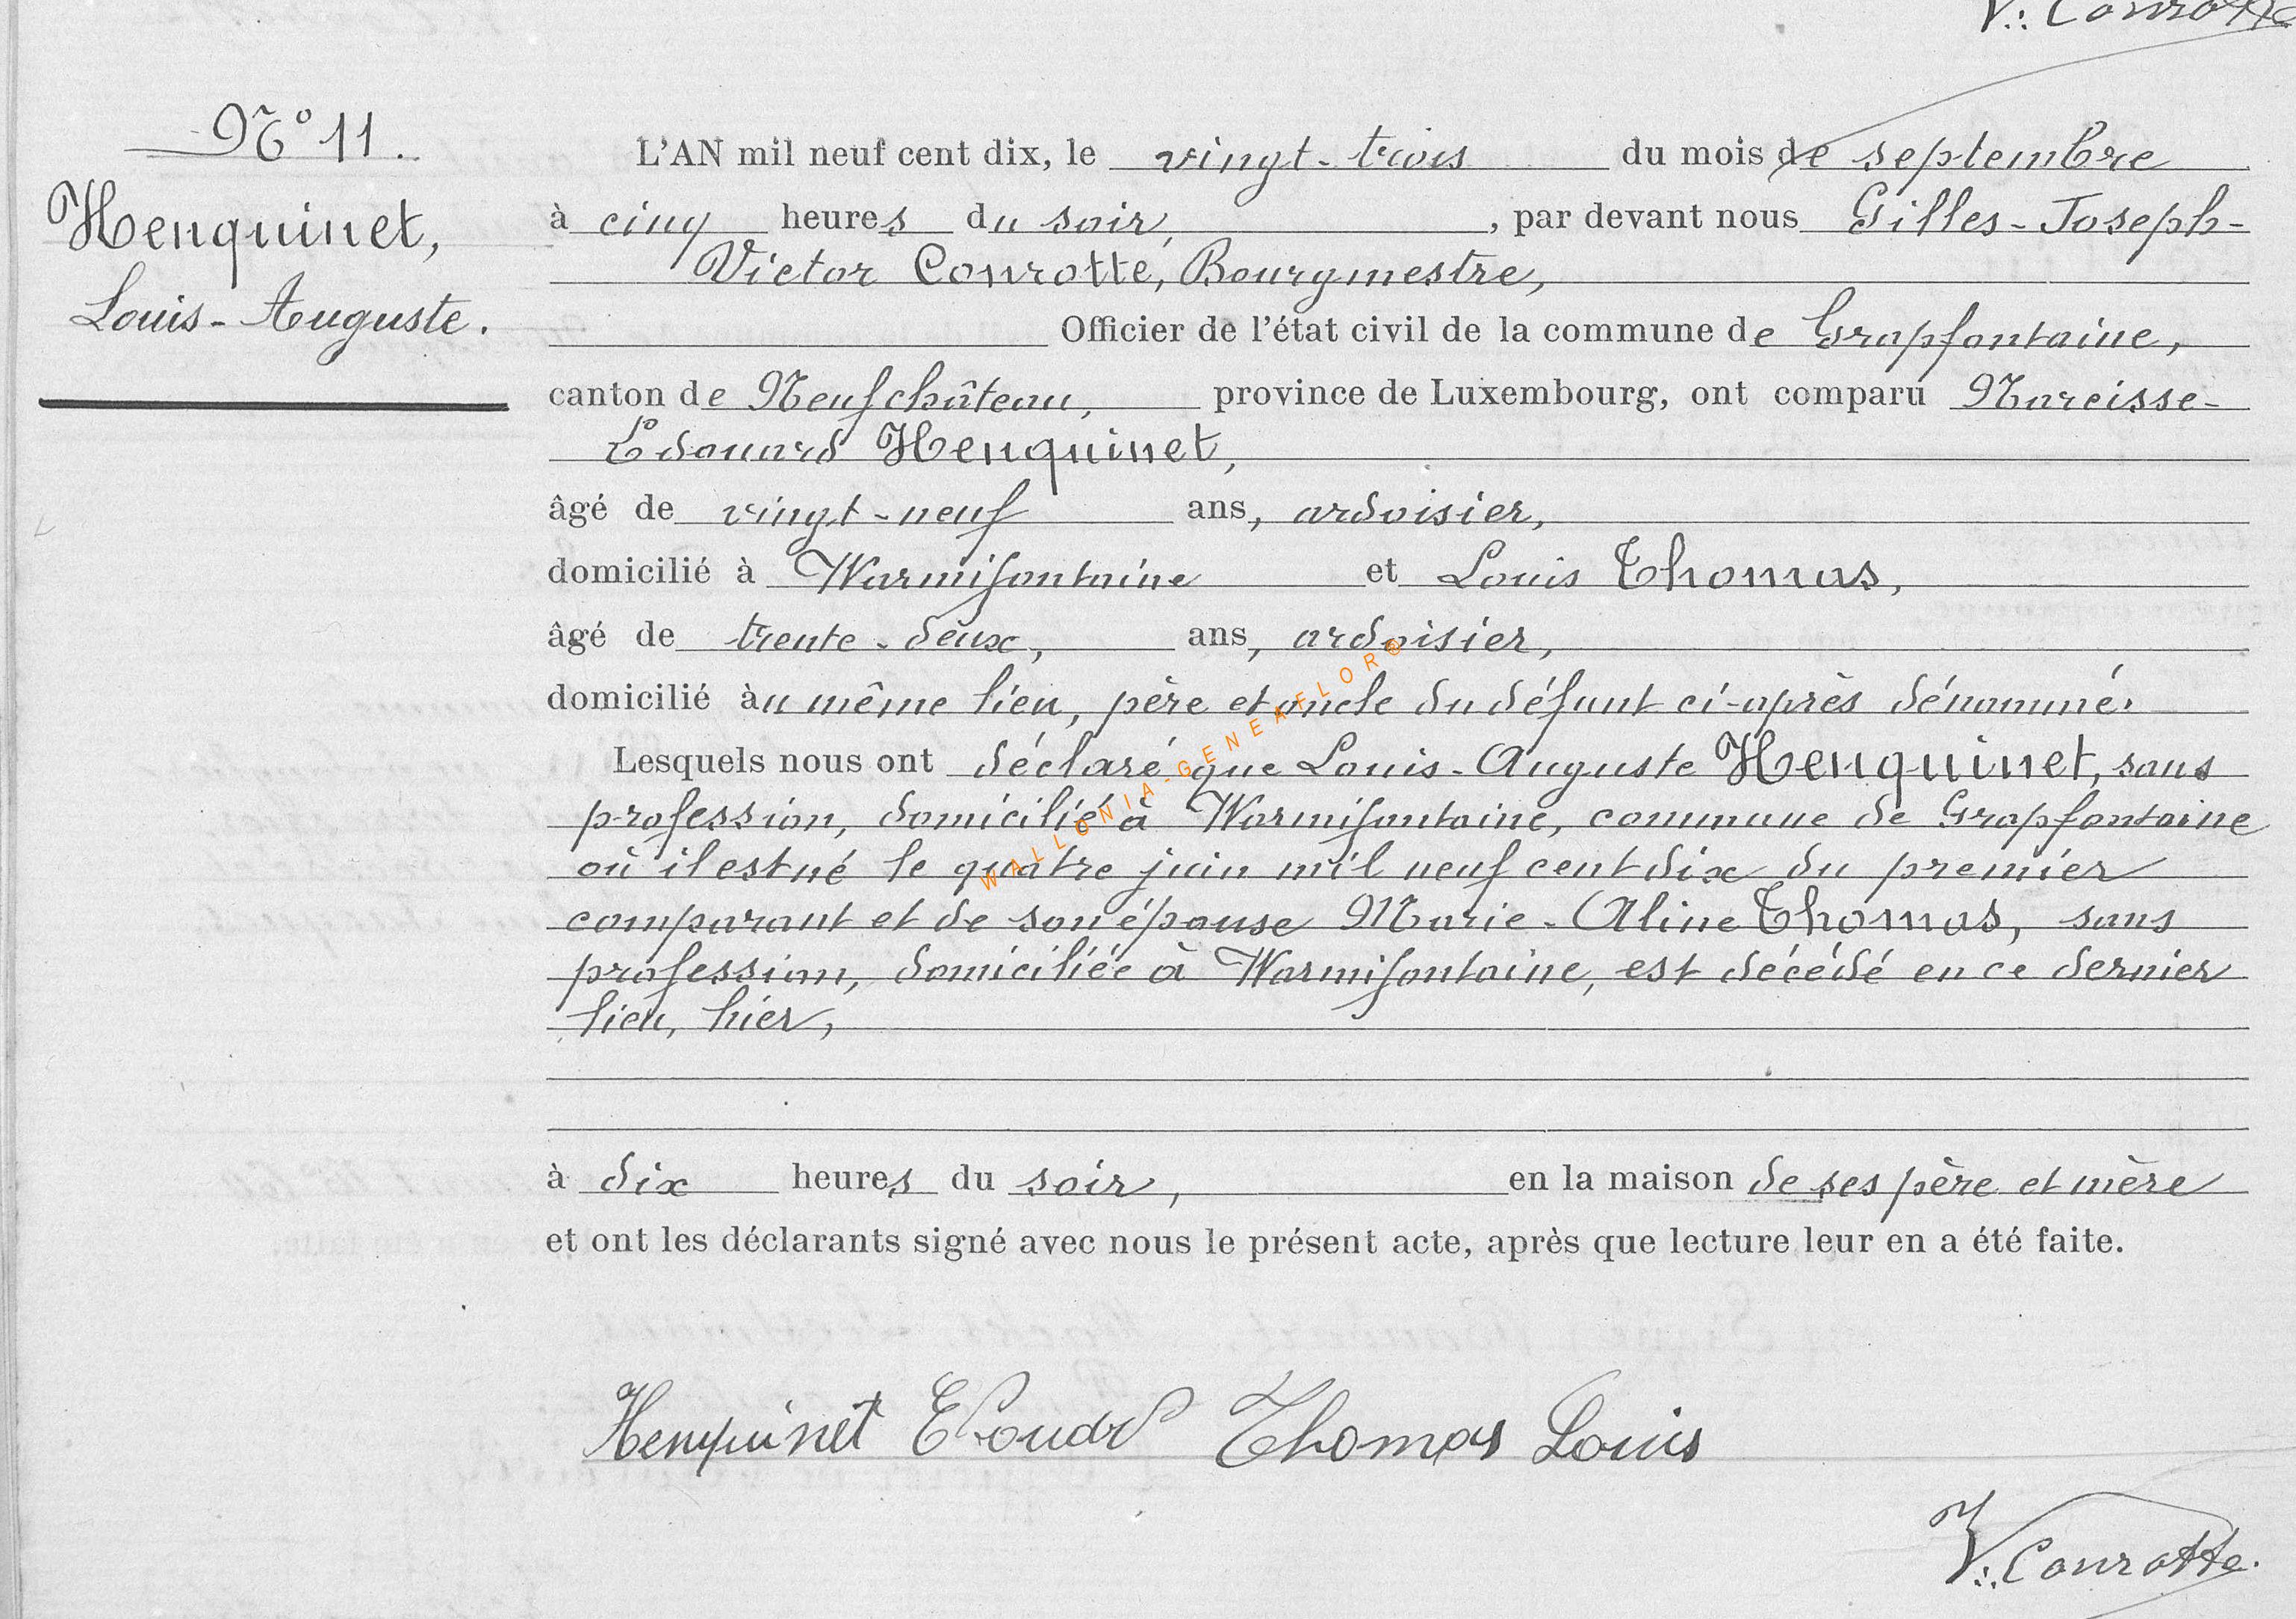 V. Conrotte
N° 11.
Henquinet,
Louis-Auguste.
L'AN mil neuf cent dix, le vingt-trois du mois de septembre
à cinq heures du soir, , par devant nous Gilles-Joseph-
Victor Conrotte, Bourgmestre,
Officier de l'état civil de la commune de Grapfontaine,
canton de Neufchâteau, province de Luxembourg, ont comparu Narcisse-
Edouard Henquinet,
âgé de vingt-neuf ans, ardoisier,
domicilié à Warmifontaine et Louis Thomas,
âgé de trente-deux, ans, ardoisier,
domicilié au même lieu, père et oncle du défunt ci-après dénommé.
Lesquels nous ont déclaré que Louis-Auguste Henquinet, sans
profession, domicilié à Warmifontaine, commune de Grapfontaine
où il est né le quatre juin mil neuf cent dix du premier
comparant et de son épouse Marie-Aline Thomas, sans
profession, domiciliée à Warmifontaine, est décédé en ce dernier
lieu, hier,
à dix heures du soir, en la maison de ses père et mère
et ont les déclarants signé avec nous le présent acte, après que lecture leur en a été faite.
Henquinet Thomas Louis
V. Conrotte.
WALLONIA-GENEAFLOR®